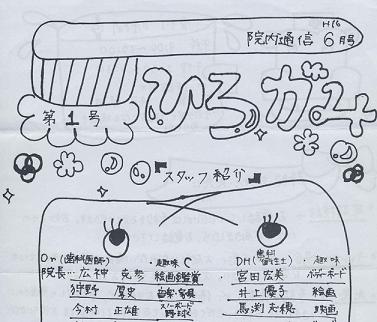 H16
院内通信 6月号
第1号
ひろかみ
スタッフ紹介
Dr(歯科医師) ・趣味
DH(歯科衛生士) ・趣味
院長…広神 克彦 絵画鑑賞
宮田宏美 ボディーボード
狩野 厚史
井上優子 絵画
今村 正雄 スノーボード 野球
馬渕志穂 映画